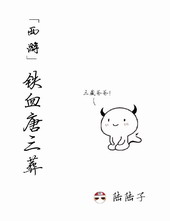 「西游」
铁血唐三葬
三藏爷爷！
陆陆子